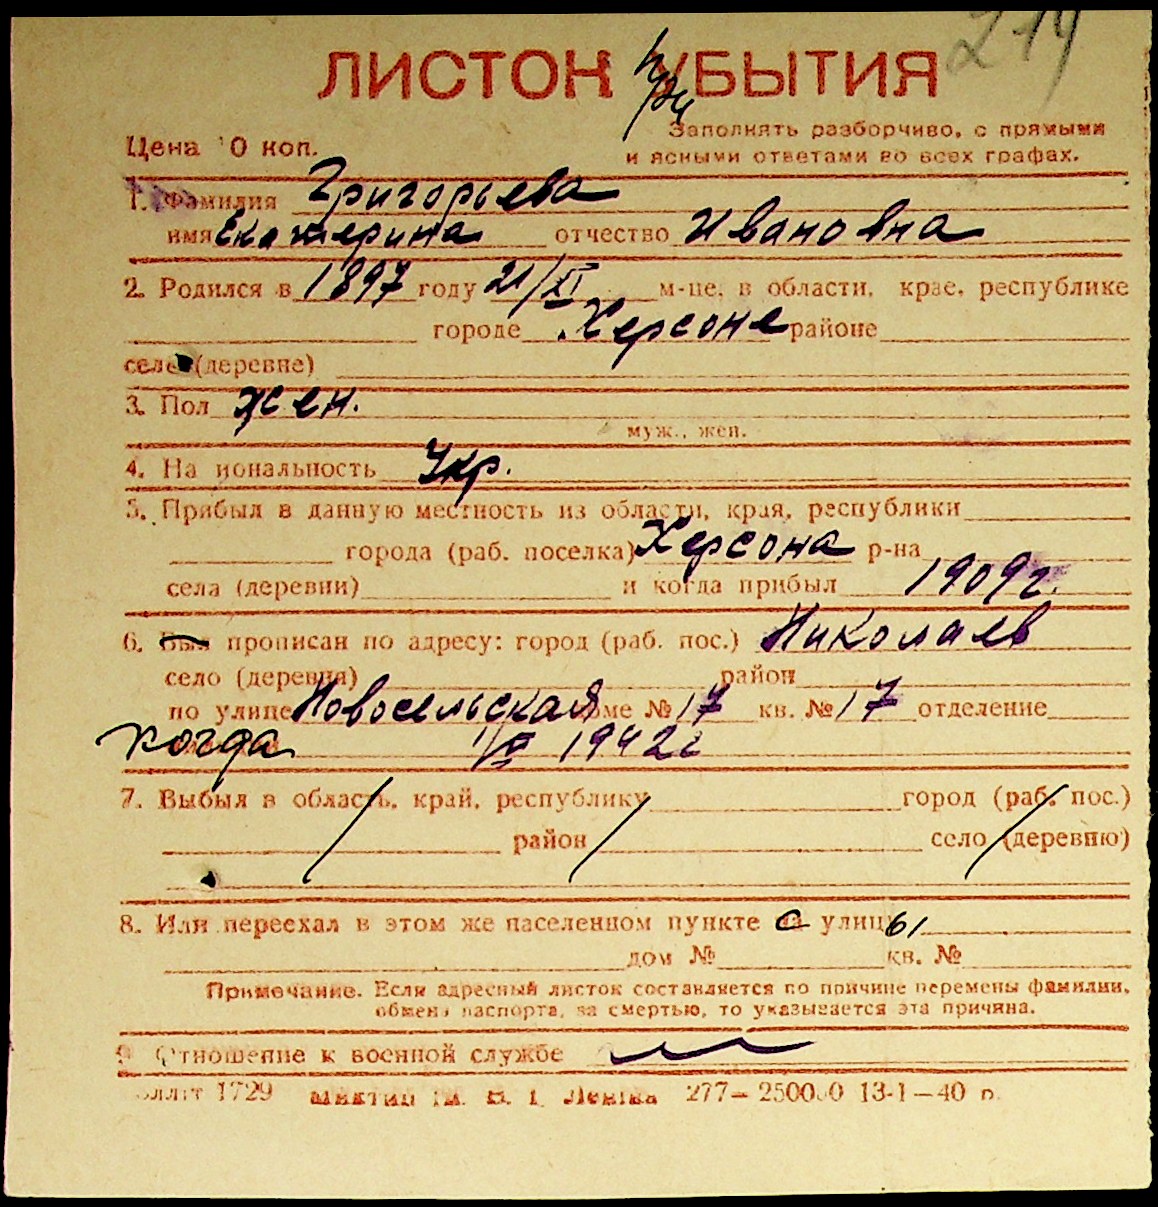 214
ЛИСТОК при УБЫТИЯ
Цена 10 коп.
Заполнять разборчиво, с прямыми
и ясными ответами во всех графах.
1. Фамилия Григорьева
имя Екатерина отчество Ивановна
2. Родился в 1897 году 21/XI м-це, в области, крае, республике
городе Херсоне районе
село (деревне)
3. Пол жен.
муж., жен.
4. Национальность Укр.
5. Прибыл в данную местность из области, края, республики
города (раб. поселка) Херсона р-на
села (деревни) и когда прибыл 1909 г.
6. Был прописан по адресу: город (раб. пос.) Николаев
село (деревня) район
по улице Новосельская доме № 17 кв. № 17 отделение
когда 1942 г
7. Выбыл в область, край, республику город (раб. пос.)
район село (деревню)
8. Или переехал в этом же населенном пункте с улицы
дом № кв. №
Примечание. Если адресный листок составляется по причине перемены фамилии,
обмена паспорта, за смертью, то указывается эта причина.
9. Отношение к военной службе
1729 им. В. І. Леніна 277— 250000 13-1—40 р.